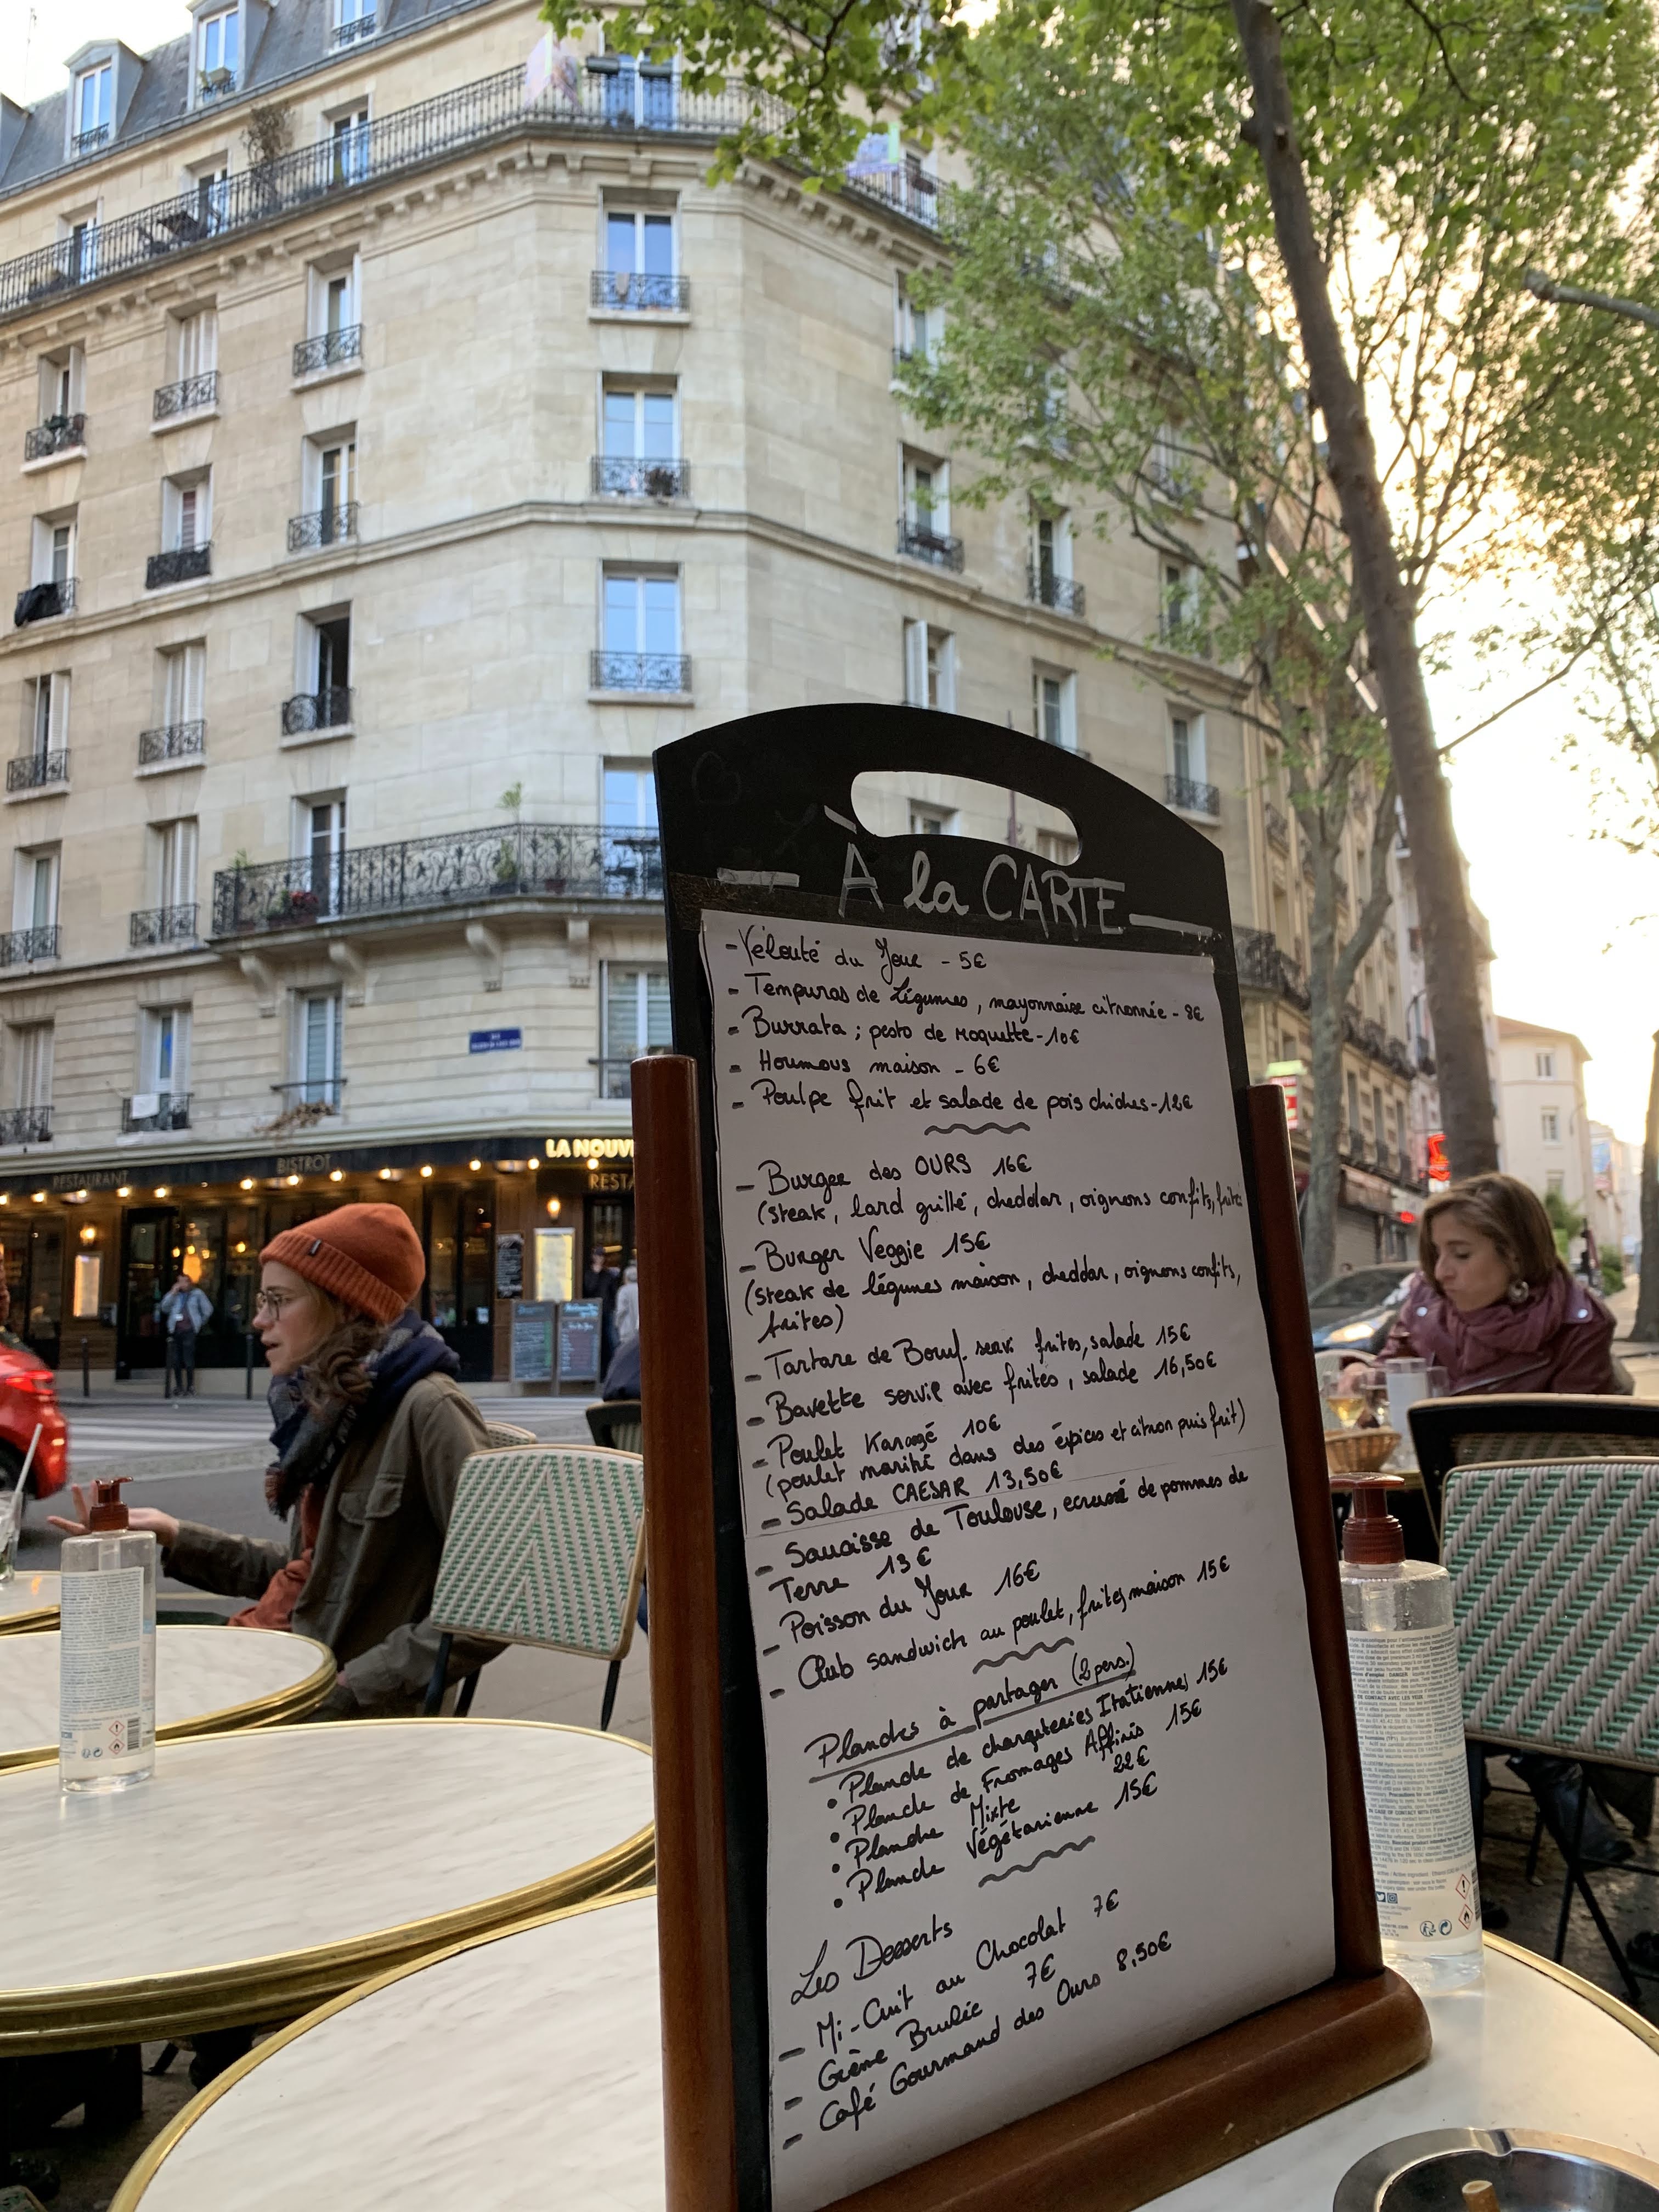 RESTAURANT
BISTROT
LA NOUV
REST
À la CARTE
- Velouté du Jour - 5€
- Tempuras de Légumes, mayonnaise citronnée - 8€
- Burrata ; pesto de roquette - 10€
- Houmous maison - 6€
- Poulpe frit et salade de pois chiches - 12€
- Burger des OURS 16€
(steak, lard grillé, cheddar, oignons confits, frites
- Burger Veggie 15€
(steak de légumes maison, cheddar, oignons confits,
frites)
- Tartare de Boeuf. servi frites, salade 15€
- Bavette servie avec frites, salade 16,50€
- Poulet Karaagé 10€
(poulet mariné dans des épices et citron puis frit)
- Salade CAESAR 13,50€
- Saucisse de Toulouse, ecrasé de pommes de
Terre 13€
- Poisson du Jour 16€
- Club sandwich au poulet, frites maison 15€
Planches à partager (2 pers.)
• Planche de charcuteries Italiennes 15€
• Planche de Fromages Affinés 15€
• Planche Mixte 22€
• Planche Végétarienne 15€
Les Desserts
- Mi-Cuit au Chocolat 7€
- Crème Brulée 7€
- Café Gourmand des Ours 8,50€